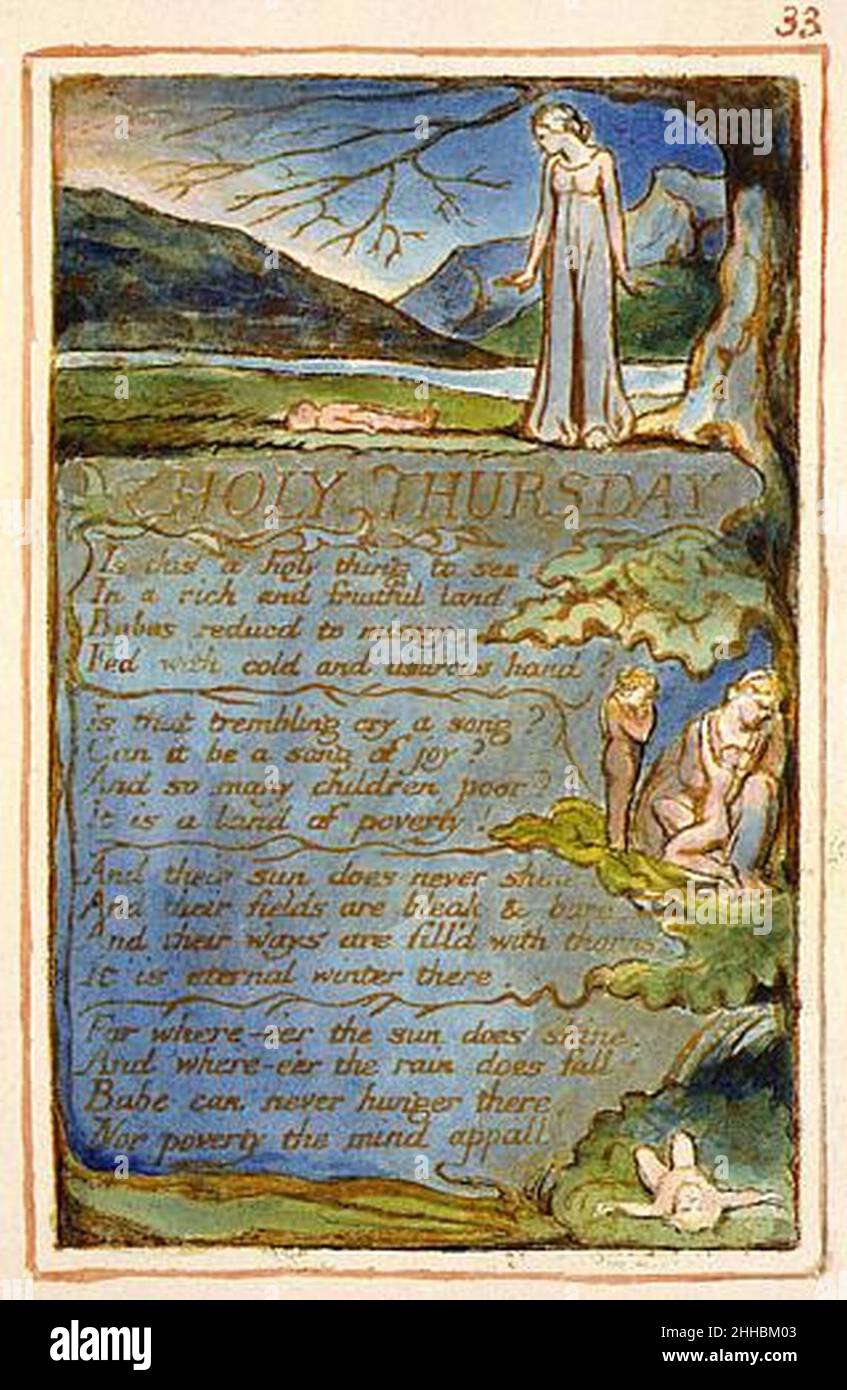 33
HOLY THURSDAY
Is this a holy thing to see
In a rich and fruitful land
Babes reducd to misery
Fed with cold and usurous hand?
Is that trembling cry a song?
Can it be a song of joy?
And so many children poor?
It is a land of poverty!
And their sun does never shine
And their fields are bleak & bare
And their ways are fill'd with thorns
It is eternal winter there.
For where-e'er the sun does shine.
And where-e'er the rain does fall:
Babe can never hunger there,
Nor poverty the mind appall.
alamy
Image ID: 2HHBM03
www.alamy.com